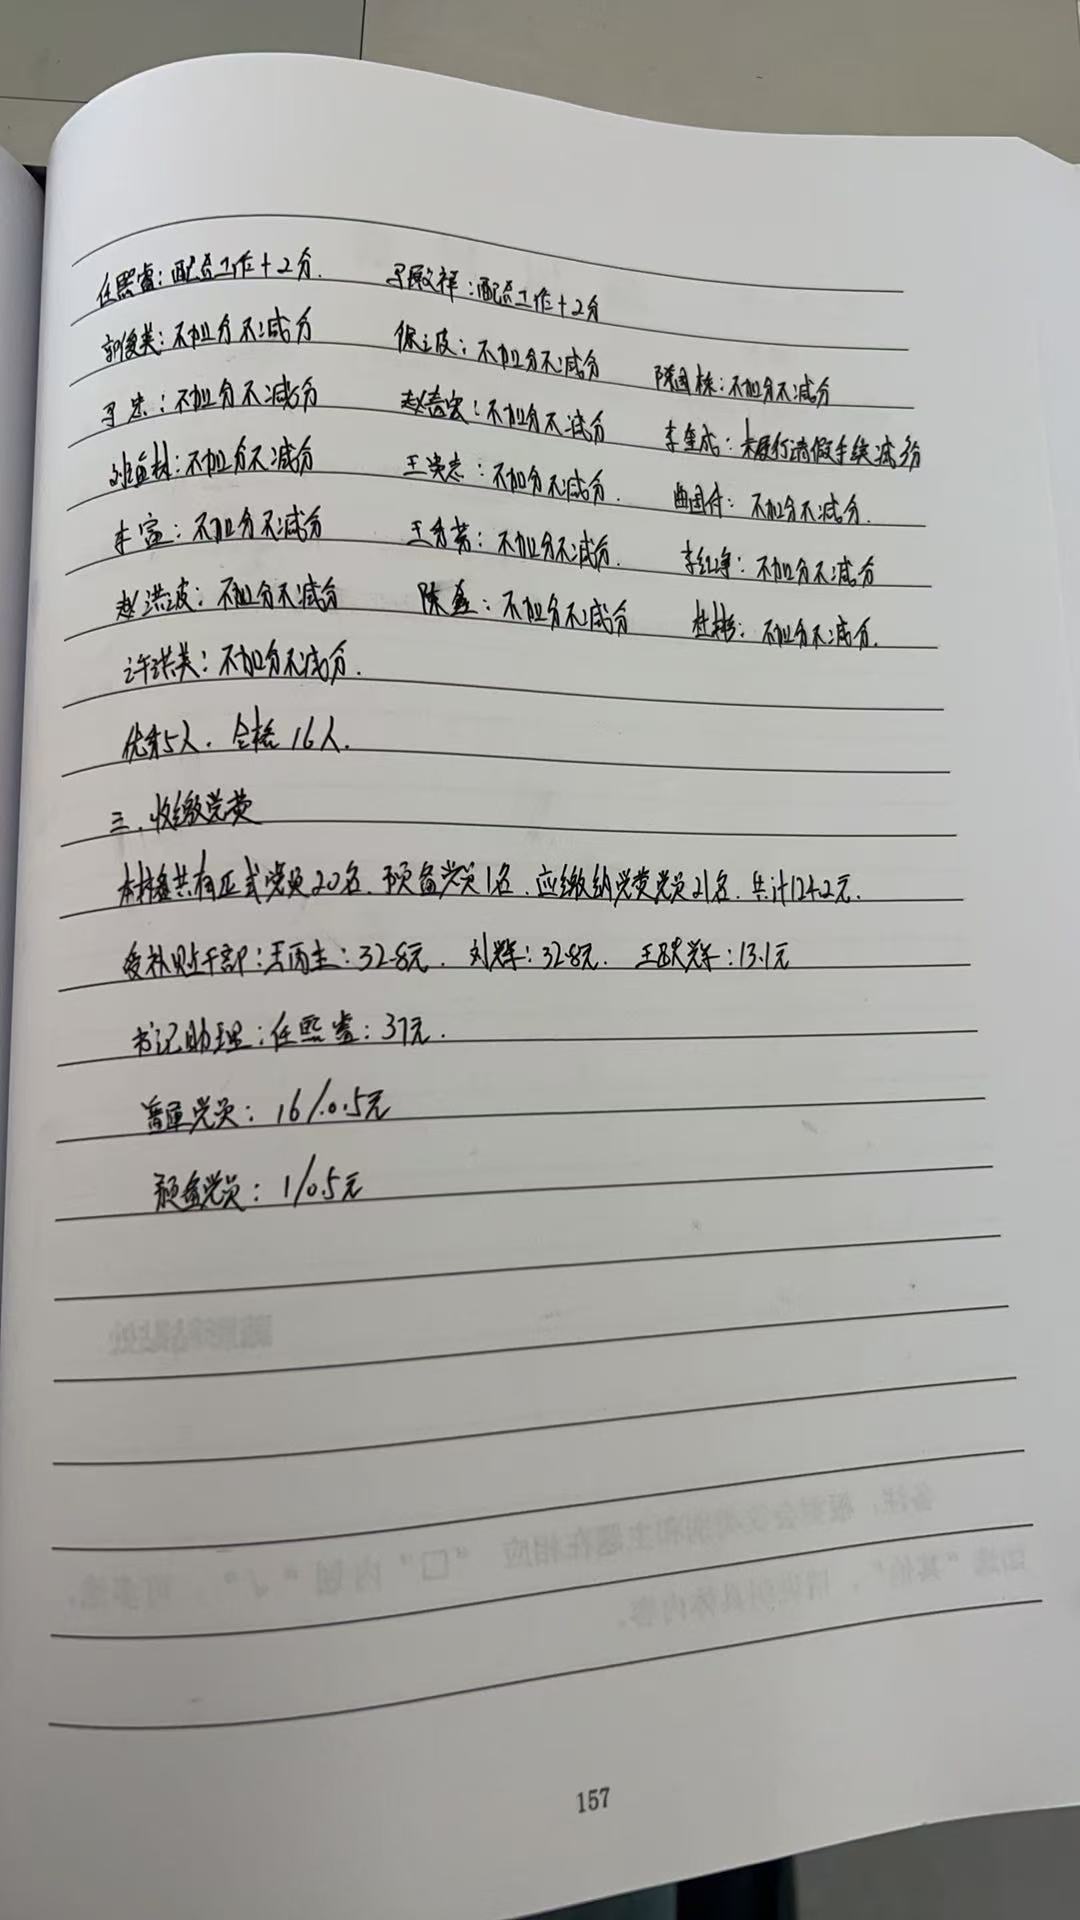 任熙睿：配合工作+2分. 马殿祥：配合工作+2分
郭俊美：不加分不减分 保之波：不加分不减分 陈国栋：不加分不减分
马忠：不加分不减分 赵春宏：不加分不减分 李奎成：未履行请假手续减分
不加分不减分 王洪志：不加分不减分. 曲国仔：不加分不减分.
车富：不加分不减分 王秀芳：不加分不减分. 李红净：不加分不减分
赵洪波：不加分不减分 陈鑫：不加分不减分 杜彬：不加分不减分.
许洪美：不加分不减分.
优秀5人. 合格16人.
三. 收缴党费
本村共有正式党员20名. 预备党员1名. 应缴纳党费党员21名. 共计124.2元.
受补贴干部：王丙生：32.8元. 刘辉：32.8元. 王跃辉：13.1元
书记助理：任熙睿：37元.
普通党员：16/0.5元
预备党员：1/0.5元
157